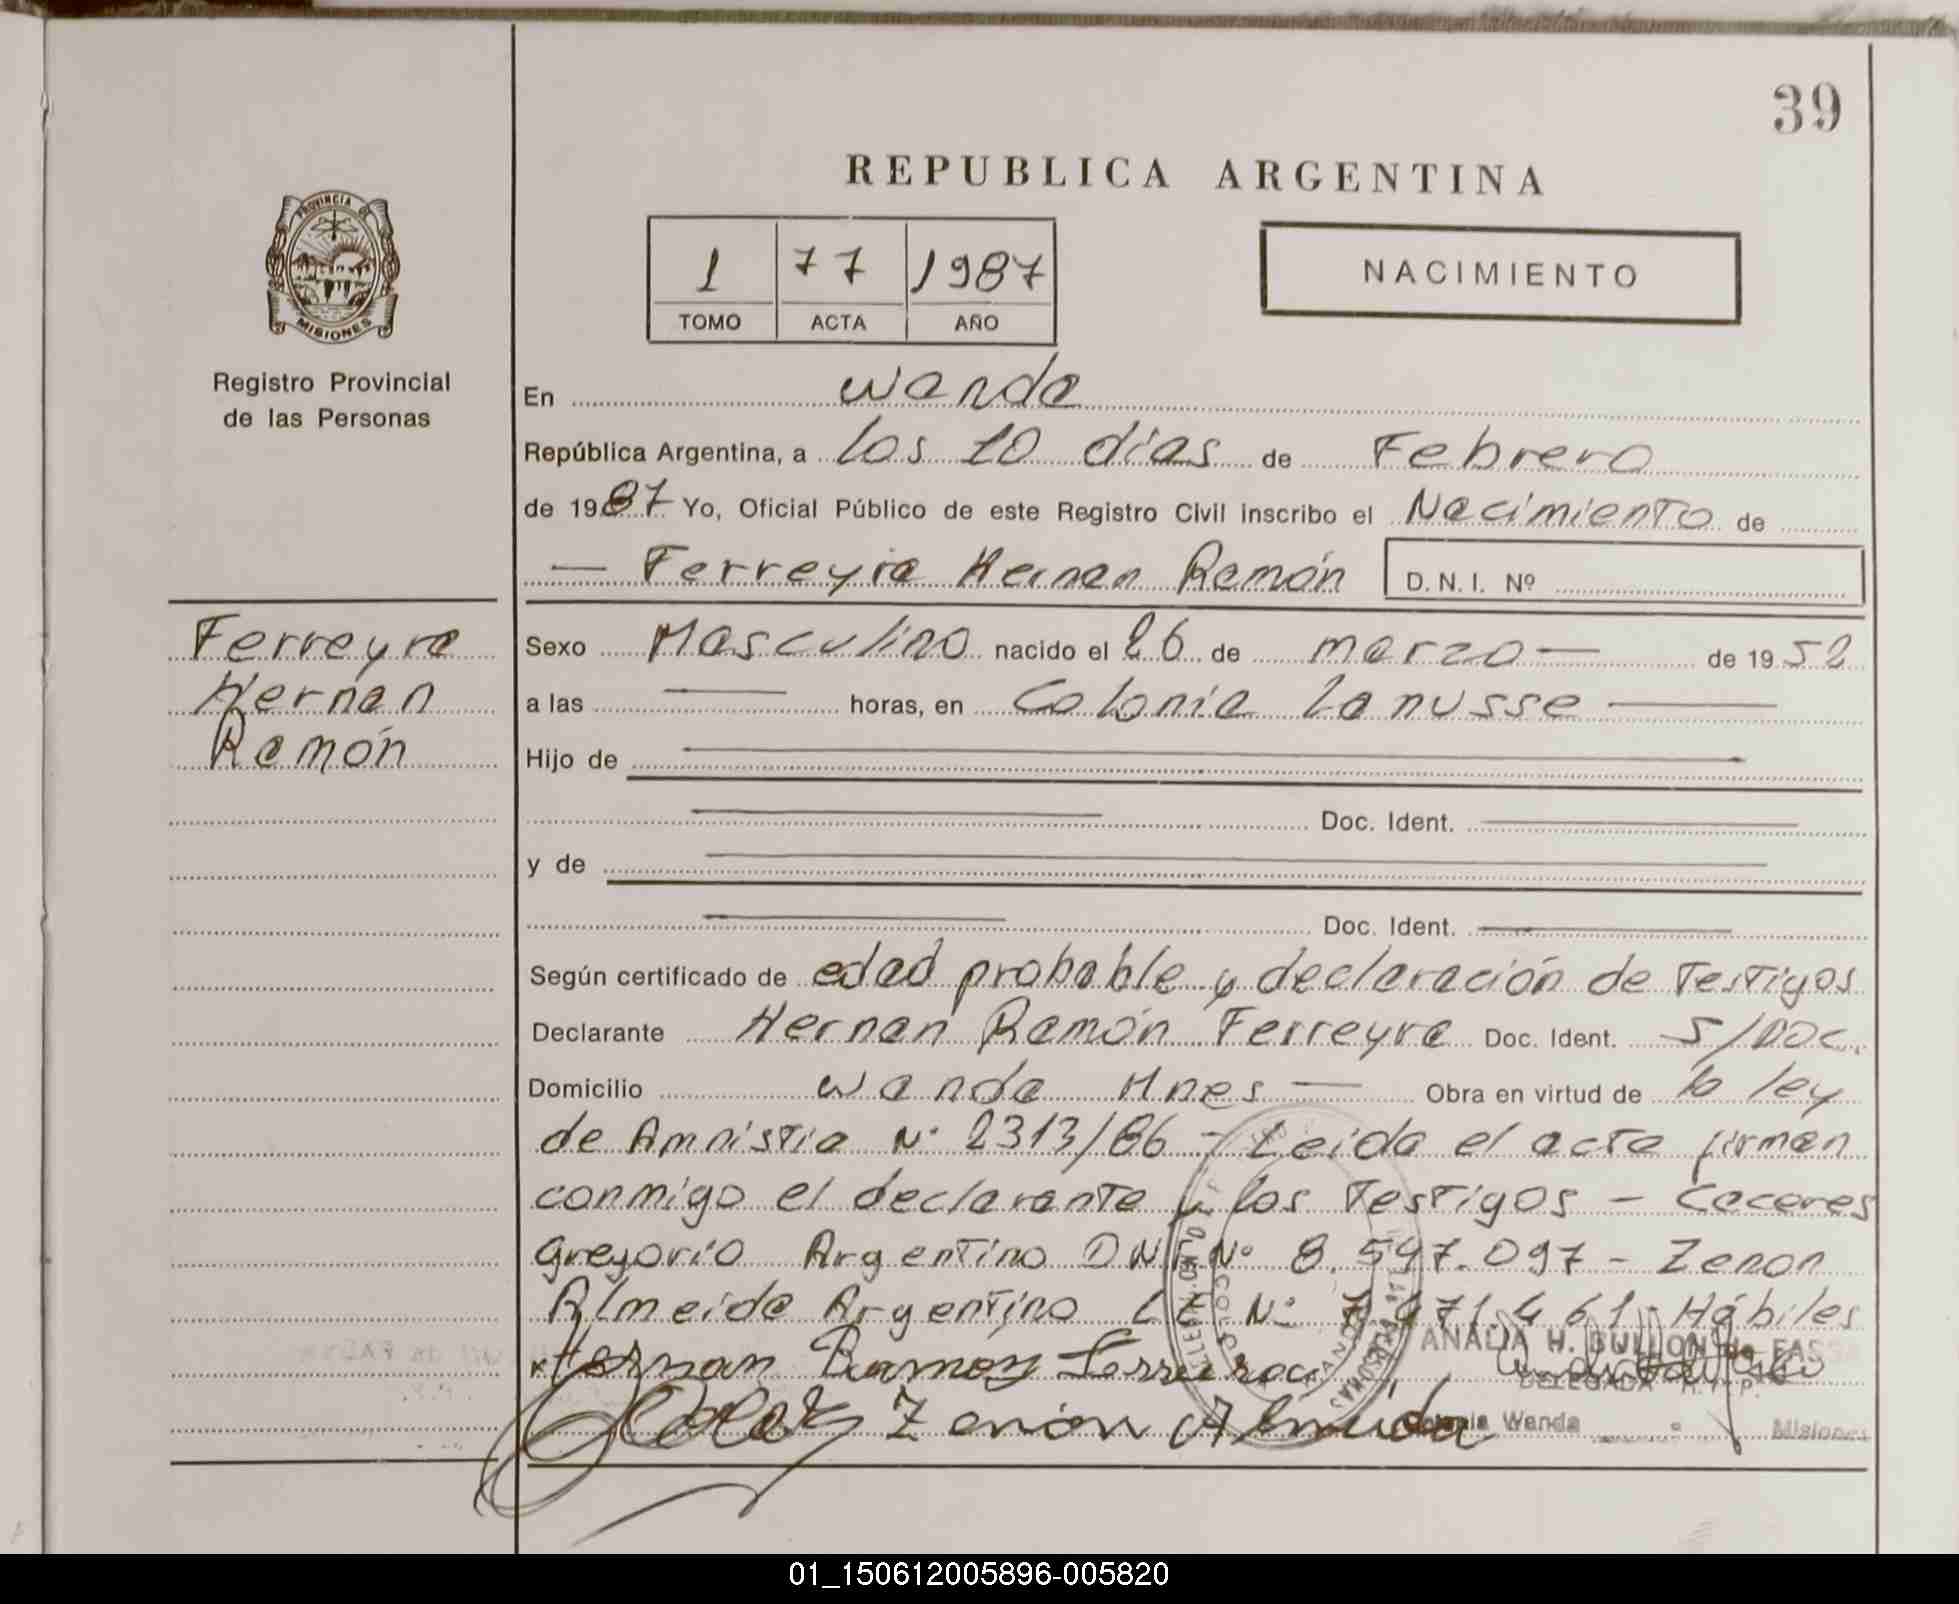 39
REPUBLICA ARGENTINA
PROVINCIA DE
MISIONES
Registro Provincial
de las Personas
1 77 1987
TOMO ACTA AÑO
NACIMIENTO
En Wanda
República Argentina, a los 10 días de Febrero
de 1987 Yo, Oficial Público de este Registro Civil inscribo el Nacimiento de
— Ferreyra Hernan Ramón D.N.I. Nº
Ferreyra
Hernan
Ramón
Sexo Masculino nacido el 26 de marzo — de 1952
a las — horas, en Colonia Lanusse —
Hijo de —
— Doc. Ident. —
y de —
— Doc. Ident. —
Según certificado de edad probable y declaración de Testigos
Declarante Hernan Ramón Ferreyra Doc. Ident. S/DOC.
Domicilio Wanda Mnes — Obra en virtud de la ley
de Amnistia N° 2313/86 - Leida el acta firman
conmigo el declarante y los Testigos - Caceres
Gregorio Argentino DNI N° 8.547.097 - Zenon
Almeida Argentino N° 461 - Hábiles
Hernan Ramon Ferreira
ANALIA H. BULLON de FASS
DELEGADA R. P.
Zenón Almeida
Colonia Wanda Misiones
01_150612005896-005820